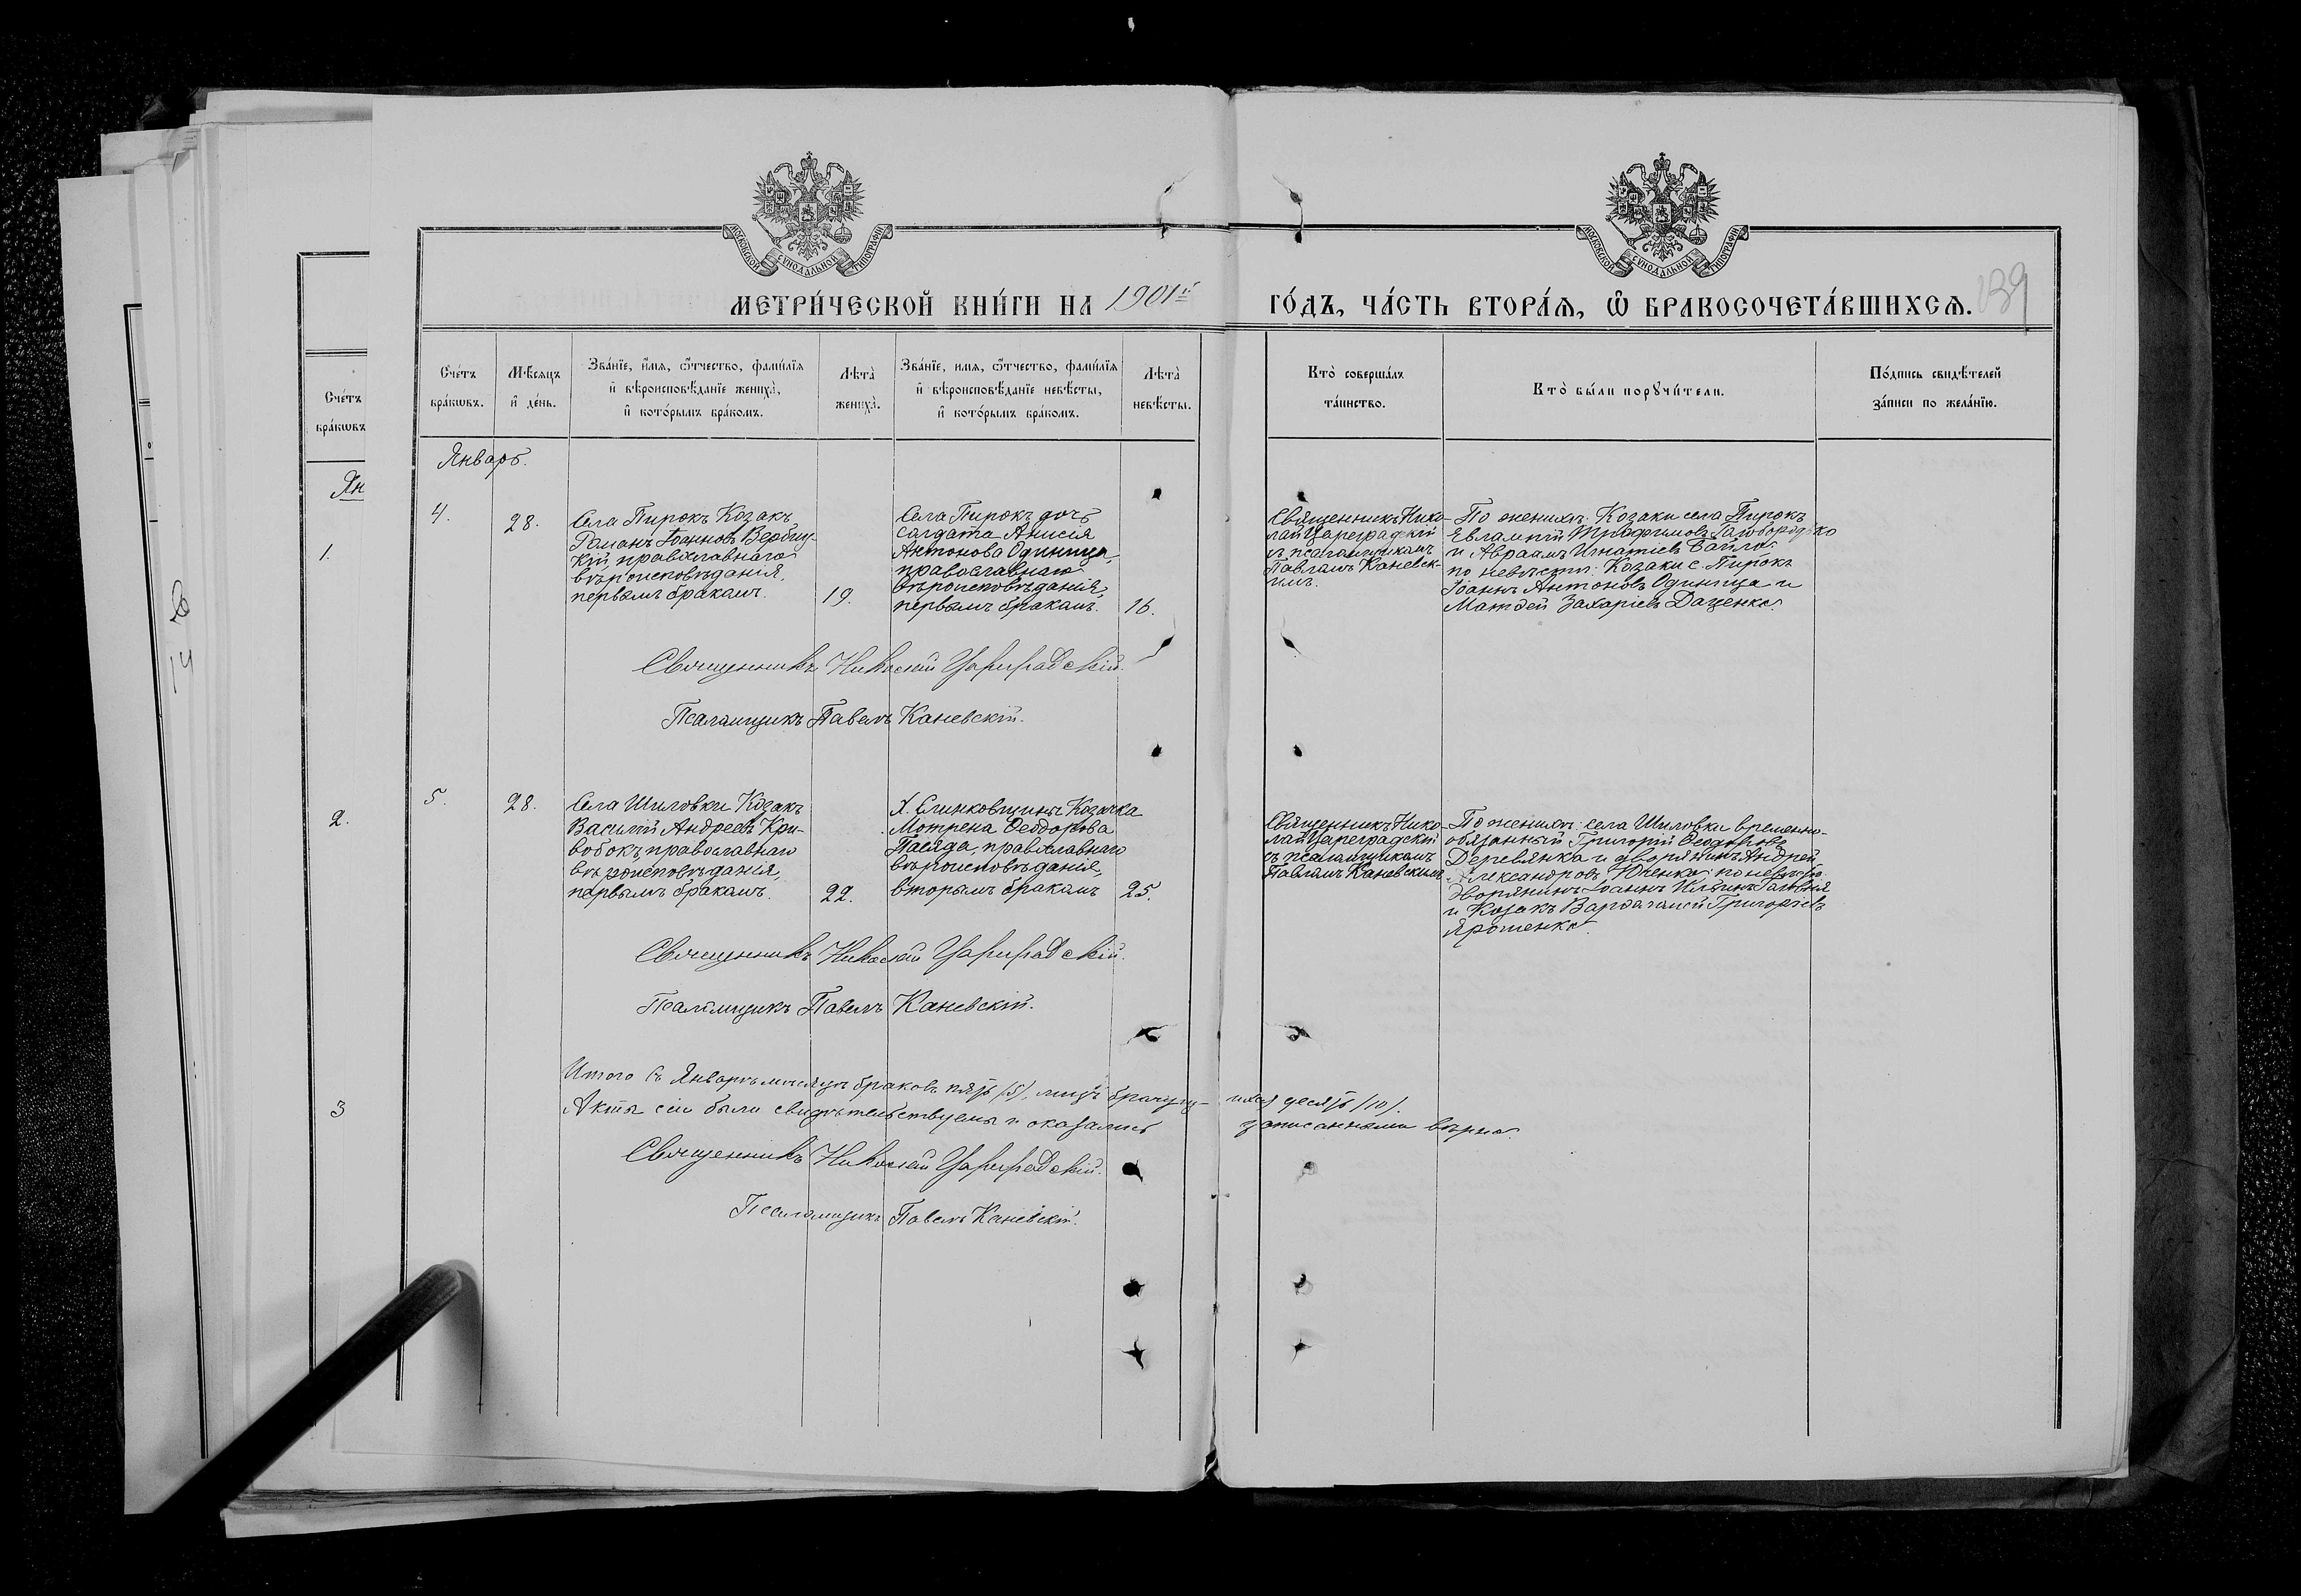 МОСКОВСКОЙ СѴНОДАЛЬНОЙ ТИПОГРАФІИ
МОСКОВСКОЙ СѴНОДАЛЬНОЙ ТИПОГРАФІИ
МЕТРИ́ЧЕСКОЙ КНИ́ГИ НА 1901й ГО́ДЪ, ЧА́СТЬ ВТОРА́Ѧ, Ѽ БРАКОСОЧЕТА́ВШИХСѦ. 139
Сче́тъ бра́кѡвъ.
Мѣ́сѧцъ и҆ де́нь.
Зва́нїе, и҆́мѧ, ѻ҆́тчество, фами́лїѧ и҆ вѣроисповѣ́данїе жениха̀, и҆ кото́рымъ бра́комъ.
Лѣ́та жениха̀.
Зва́нїе, имѧ, ѻ҆́тчество, фами́лїѧ и҆ вѣроисповѣ́данїе невѣ́сты, и҆ кото́рымъ бра́комъ.
Лѣ́та невѣ́сты.
Кто̀ соверша́лъ та́инство.
Кто̀ бы́ли порꙋчи́тели.
По́дпись свидѣ́телей за́писи по жела́нїю.
Сче́тъ
бра́кѡвъ
Ян
1.
2.
3
Январь.
4.
28.
Села Пирокъ Козакъ
Романъ Іоанновъ Вербиц-
кій, православнаго
вѣроисповѣданія,
первымъ бракомъ.
19.
Села Пирокъ дочь
солдата Анисія
Антонова Одиница,
православнаго
вѣроисповѣданія,
первымъ бракомъ.
16.
Священникъ Нико-
лай Цареградскій
съ псаломщикомъ
Павломъ Каневск-
имъ.
По женихѣ: Козаки села Пирокъ
Евлампій Трофимовъ Головородько
и Авраамъ Игнатіевъ Байло;
по невѣстѣ: Козаки с. Пирокъ
Іоаннъ Антоновъ Одиница и
Матѳей Захаріевъ Даценко.
Священникъ Николай Цариградскій.
Псаломщикъ Павелъ Каневскій.
5.
28.
Села Шиловки Козакъ
Василій Андреевъ Кри-
вобокъ, православнаго
вѣроисповѣданія,
первымъ бракомъ.
22.
Х. Климковщины Козачка
Мотрена Ѳеодорова
православнаго
вѣроисповѣданія,
вторымъ бракомъ
25.
Священникъ Нико-
лай Цареградскій
съ псаломщикомъ
Павломъ Каневскимъ
По женихѣ: села Шиловки временно-
обязанный Григорій Ѳеодоровъ
Деревянка и дворянинъ Андрей
Александровъ Юченко; по невѣстѣ:
дворянинъ Іоаннъ Ильинъ
и Козакъ Варѳоломей Григоріевъ
Ярошенко.
Священникъ Николай Цариградскій.
Псаломщикъ Павелъ Каневскій.
Итого въ Январѣ мѣсяцѣ браковъ пять (5), лицъ брачущ- ихся десять (10).
Акты сіи были свидѣтельствуемы и оказались записанными вѣрно.
Священникъ Николай Цариградскій.
Псаломщикъ Павелъ Каневскій.